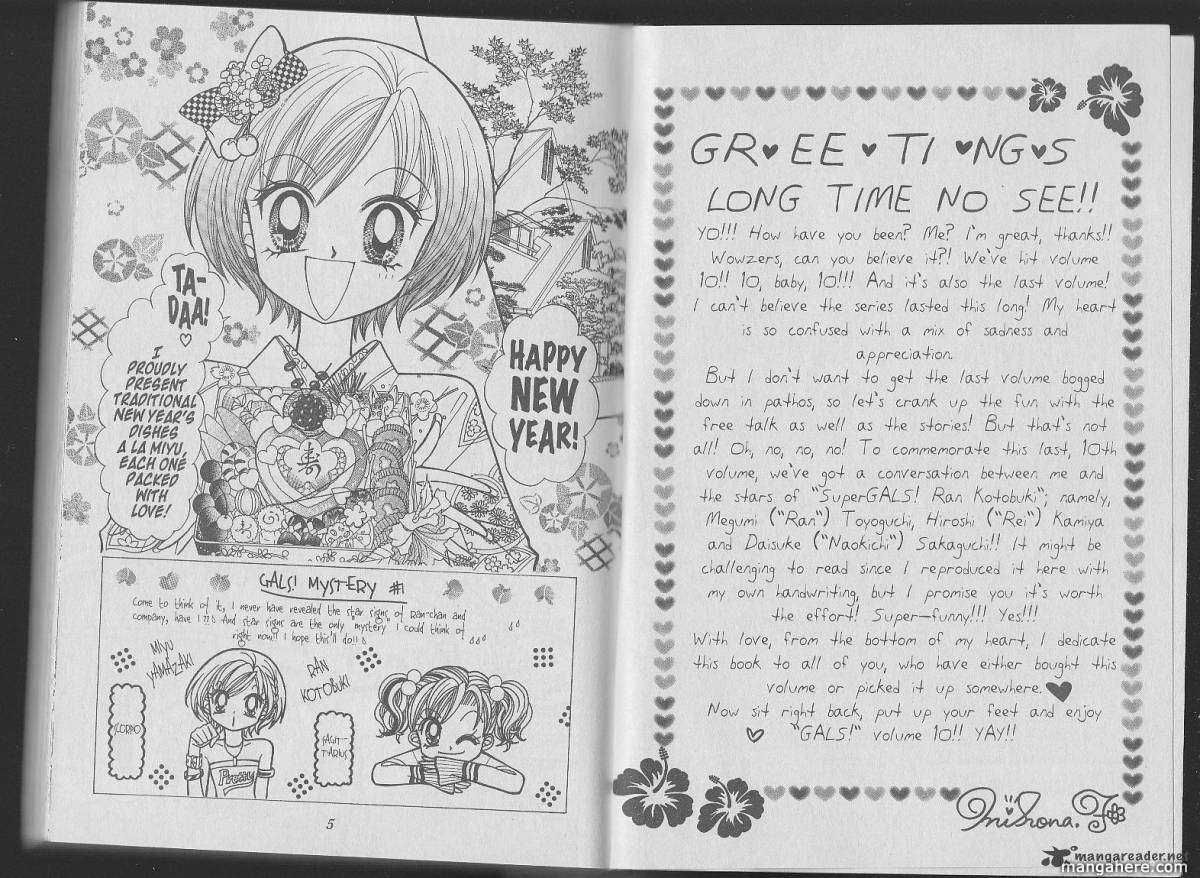 TA-
DAA!
I
PROUDLY
PRESENT
TRADITIONAL
NEW YEAR'S
DISHES
A LA MIYU,
EACH ONE
PACKED
WITH
LOVE!
HAPPY
NEW
YEAR!
寿
GALS! MYSTERY #1
Come to think of it, I never have revealed the star signs of Ran-chan and
company, have I?!! And star signs are the only "mystery" I could think of
right now!! I hope this'll do!!
MIYU
YAMAZAKI
SCORPIO
RAN
KOTOBUKI
SAGIT-
TARIUS
Pretty
5
GREETINGS
LONG TIME NO SEE!!
YO!!! How have you been? Me? I'm great, thanks!!
Wowzers, can you believe it?! We've hit volume
10!! 10, baby, 10!!! And it's also the last volume!
I can't believe the series lasted this long! My heart
is so confused with a mix of sadness and
appreciation.
But I don't want to get the last volume bogged
down in pathos, so let's crank up the fun with the
free talk as well as the stories! But that's not
all! Oh, no, no, no! To commemorate this last, 10th
volume, we've got a conversation between me and
the stars of "SuperGALS! Ran Kotobuki"; namely,
Megumi ("Ran") Toyoguchi, Hiroshi ("Rei") Kamiya
and Daisuke ("Naokichi") Sakaguchi!! It might be
challenging to read since I reproduced it here with
my own handwriting, but I promise you it's worth
the effort! Super-funny!!! Yes!!!
With love, from the bottom of my heart, I dedicate
this book to all of you, who have either bought this
volume or picked it up somewhere.
Now sit right back, put up your feet and enjoy
"GALS!" volume 10!! YAY!!
Mihona. F
mangareader.net
manganere.com